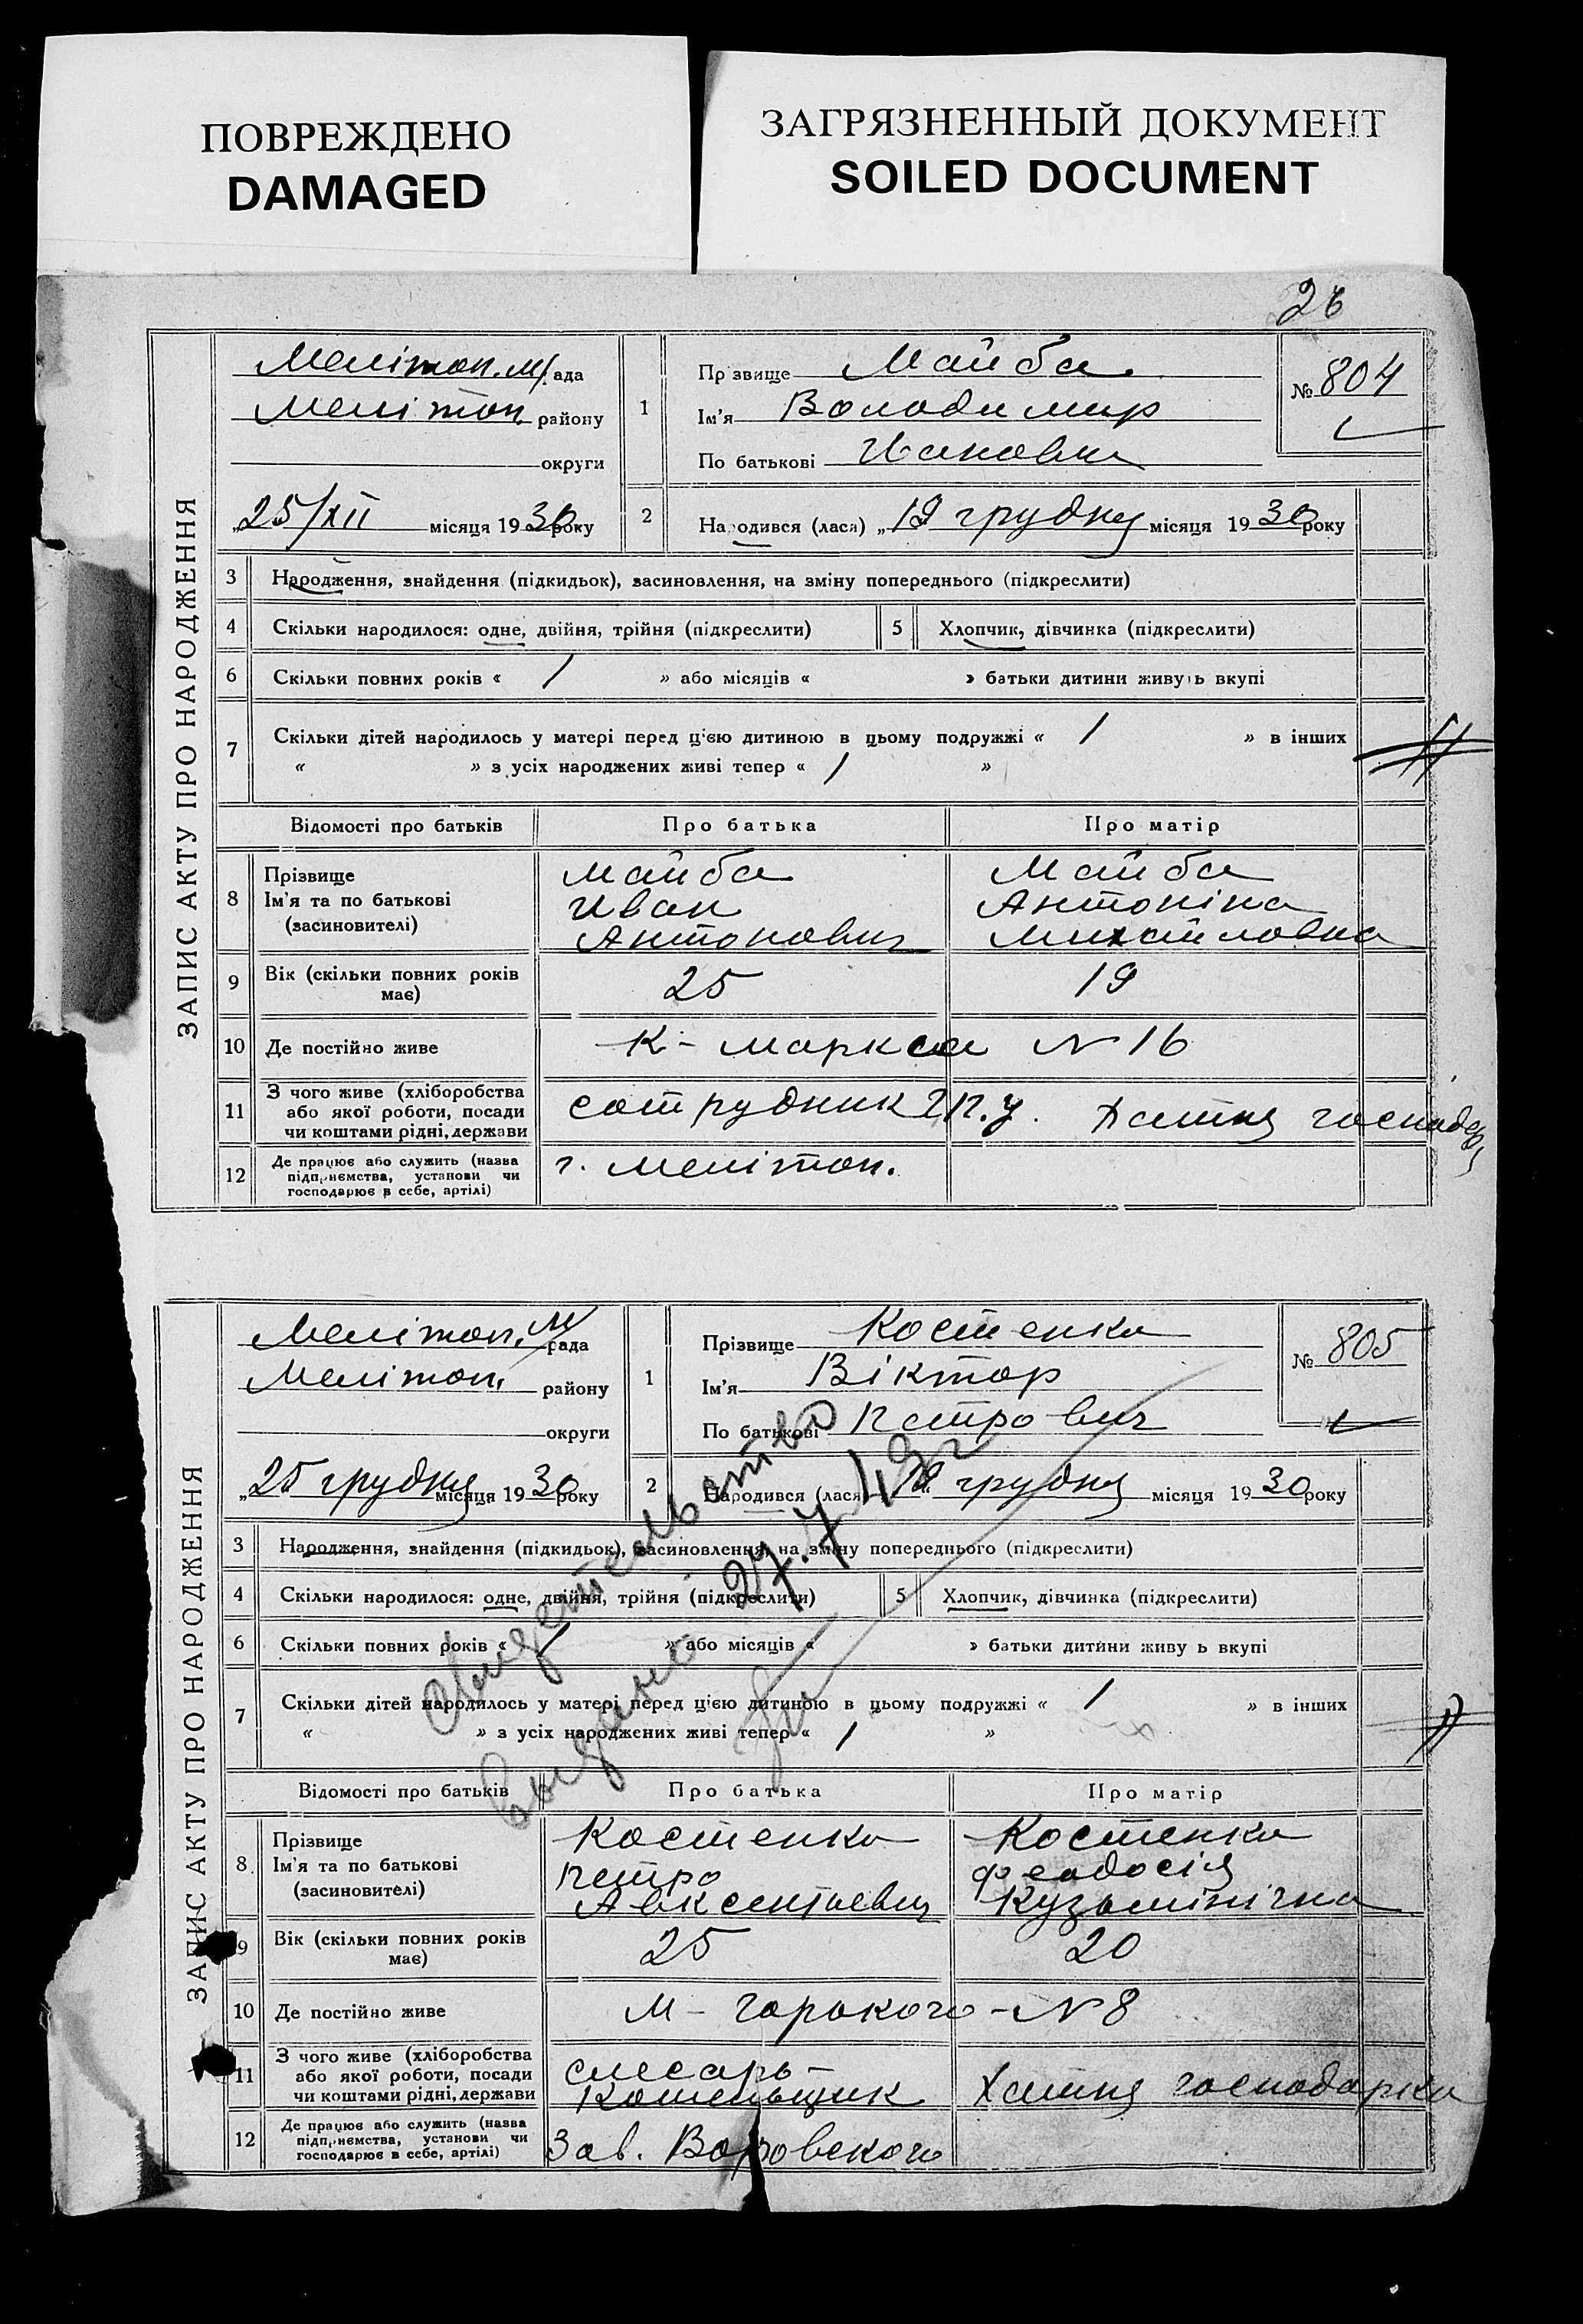 ПОВРЕЖДЕНО
DAMAGED
ЗАГРЯЗНЕННЫЙ ДОКУМЕНТ
SOILED DOCUMENT
26
ЗАПИС АКТУ ПРО НАРОДЖЕННЯ
Мелітоп. М/рада
Мелітоп. району
округи
25/XII місяця 1930 року
1
Прізвище Майба
Ім'я Володимир
По батькові Иванович
№ 804
2
Народився (лася) „19 грудня місяця 1930 року
3 Народження, знайдення (підкидьок), засиновлення, на зміну попереднього (підкреслити)
4 Скільки народилося: одне, двійня, трійня (підкреслити) 5 Хлопчик, дівчинка (підкреслити)
6 Скільки повних років « 1 » або місяців « » батьки дитини живуть вкупі
7 Скільки дітей народилось у матері перед цією дитиною в цьому подружжі « 1 » в інших
« » з усіх народжених живі тепер « 1 »
Відомості про батьків Про батька Про матір
8 Прізвище Ім'я та по батькові (засновителі)
Майба Майба
Иван Антоніна
Антонович Михайловна
9 Вік (скільки повних років має) 25 19
10 Де постійно живе К- Маркса N 16
11 З чого живе (хліборобства або якої роботи, посади чи коштами рідні, держави
сотрудник Г.П.У. Хатня господар
12 Де працює або служить (назва підприємства, установи чи господарює в себе, артілі)
г. Мелітоп.
ЗАПИС АКТУ ПРО НАРОДЖЕННЯ
Мелітоп. М/рада
Мелітоп. району
округи
„25 грудня місяця 1930 року
1
Прізвище Костенко
Ім'я Віктор
По батькові Петрович
№ 805
2
Народився (лася) 19 грудня місяця 1930 року
3 Народження, знайдення (підкидьок), засиновлення, на зміну попереднього (підкреслити)
4 Скільки народилося: одне, двійня, трійня (підкреслити) 5 Хлопчик, дівчинка (підкреслити)
6 Скільки повних років « 1 » або місяців « » батьки дитини живу ь вкупі
7 Скільки дітей народилось у матері перед цією дитиною в цьому подружжі « 1 » в інших
« » з усіх народжених живі тепер « 1 »
Свидетельство
выдано 27.7.49 г
Відомості про батьків Про батька Про матір
8 Прізвище Ім'я та по батькові (засиновителі)
Костенко Костенко
Петро Феодосія
Авксентьевич Кузьмінічна
9 Вік (скільки повних років має) 25 20
10 Де постійно живе М- Горького - N 8
11 З чого живе (хліборобства або якої роботи, посади чи коштами рідні, держави
слесарь- Хатня господарка
12 Де працює або служить (назва підприємства, установи чи господарює в себе, артілі)
Зав. Воровского